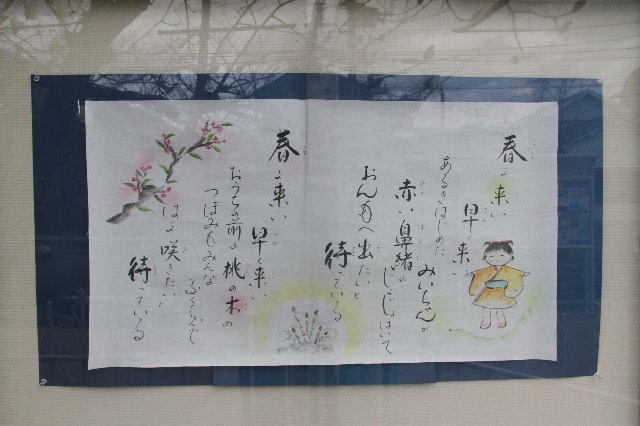 春よ来い
早く来い
あるきはじめた
みいちゃんが
赤い鼻緒の
じょじょはいて
おんもへ出たいと
待っている
春よ来い
早く来い
おうちの前の桃の木の
つぼみもみんな
ふくらんで
はよ咲きたいと
待っている